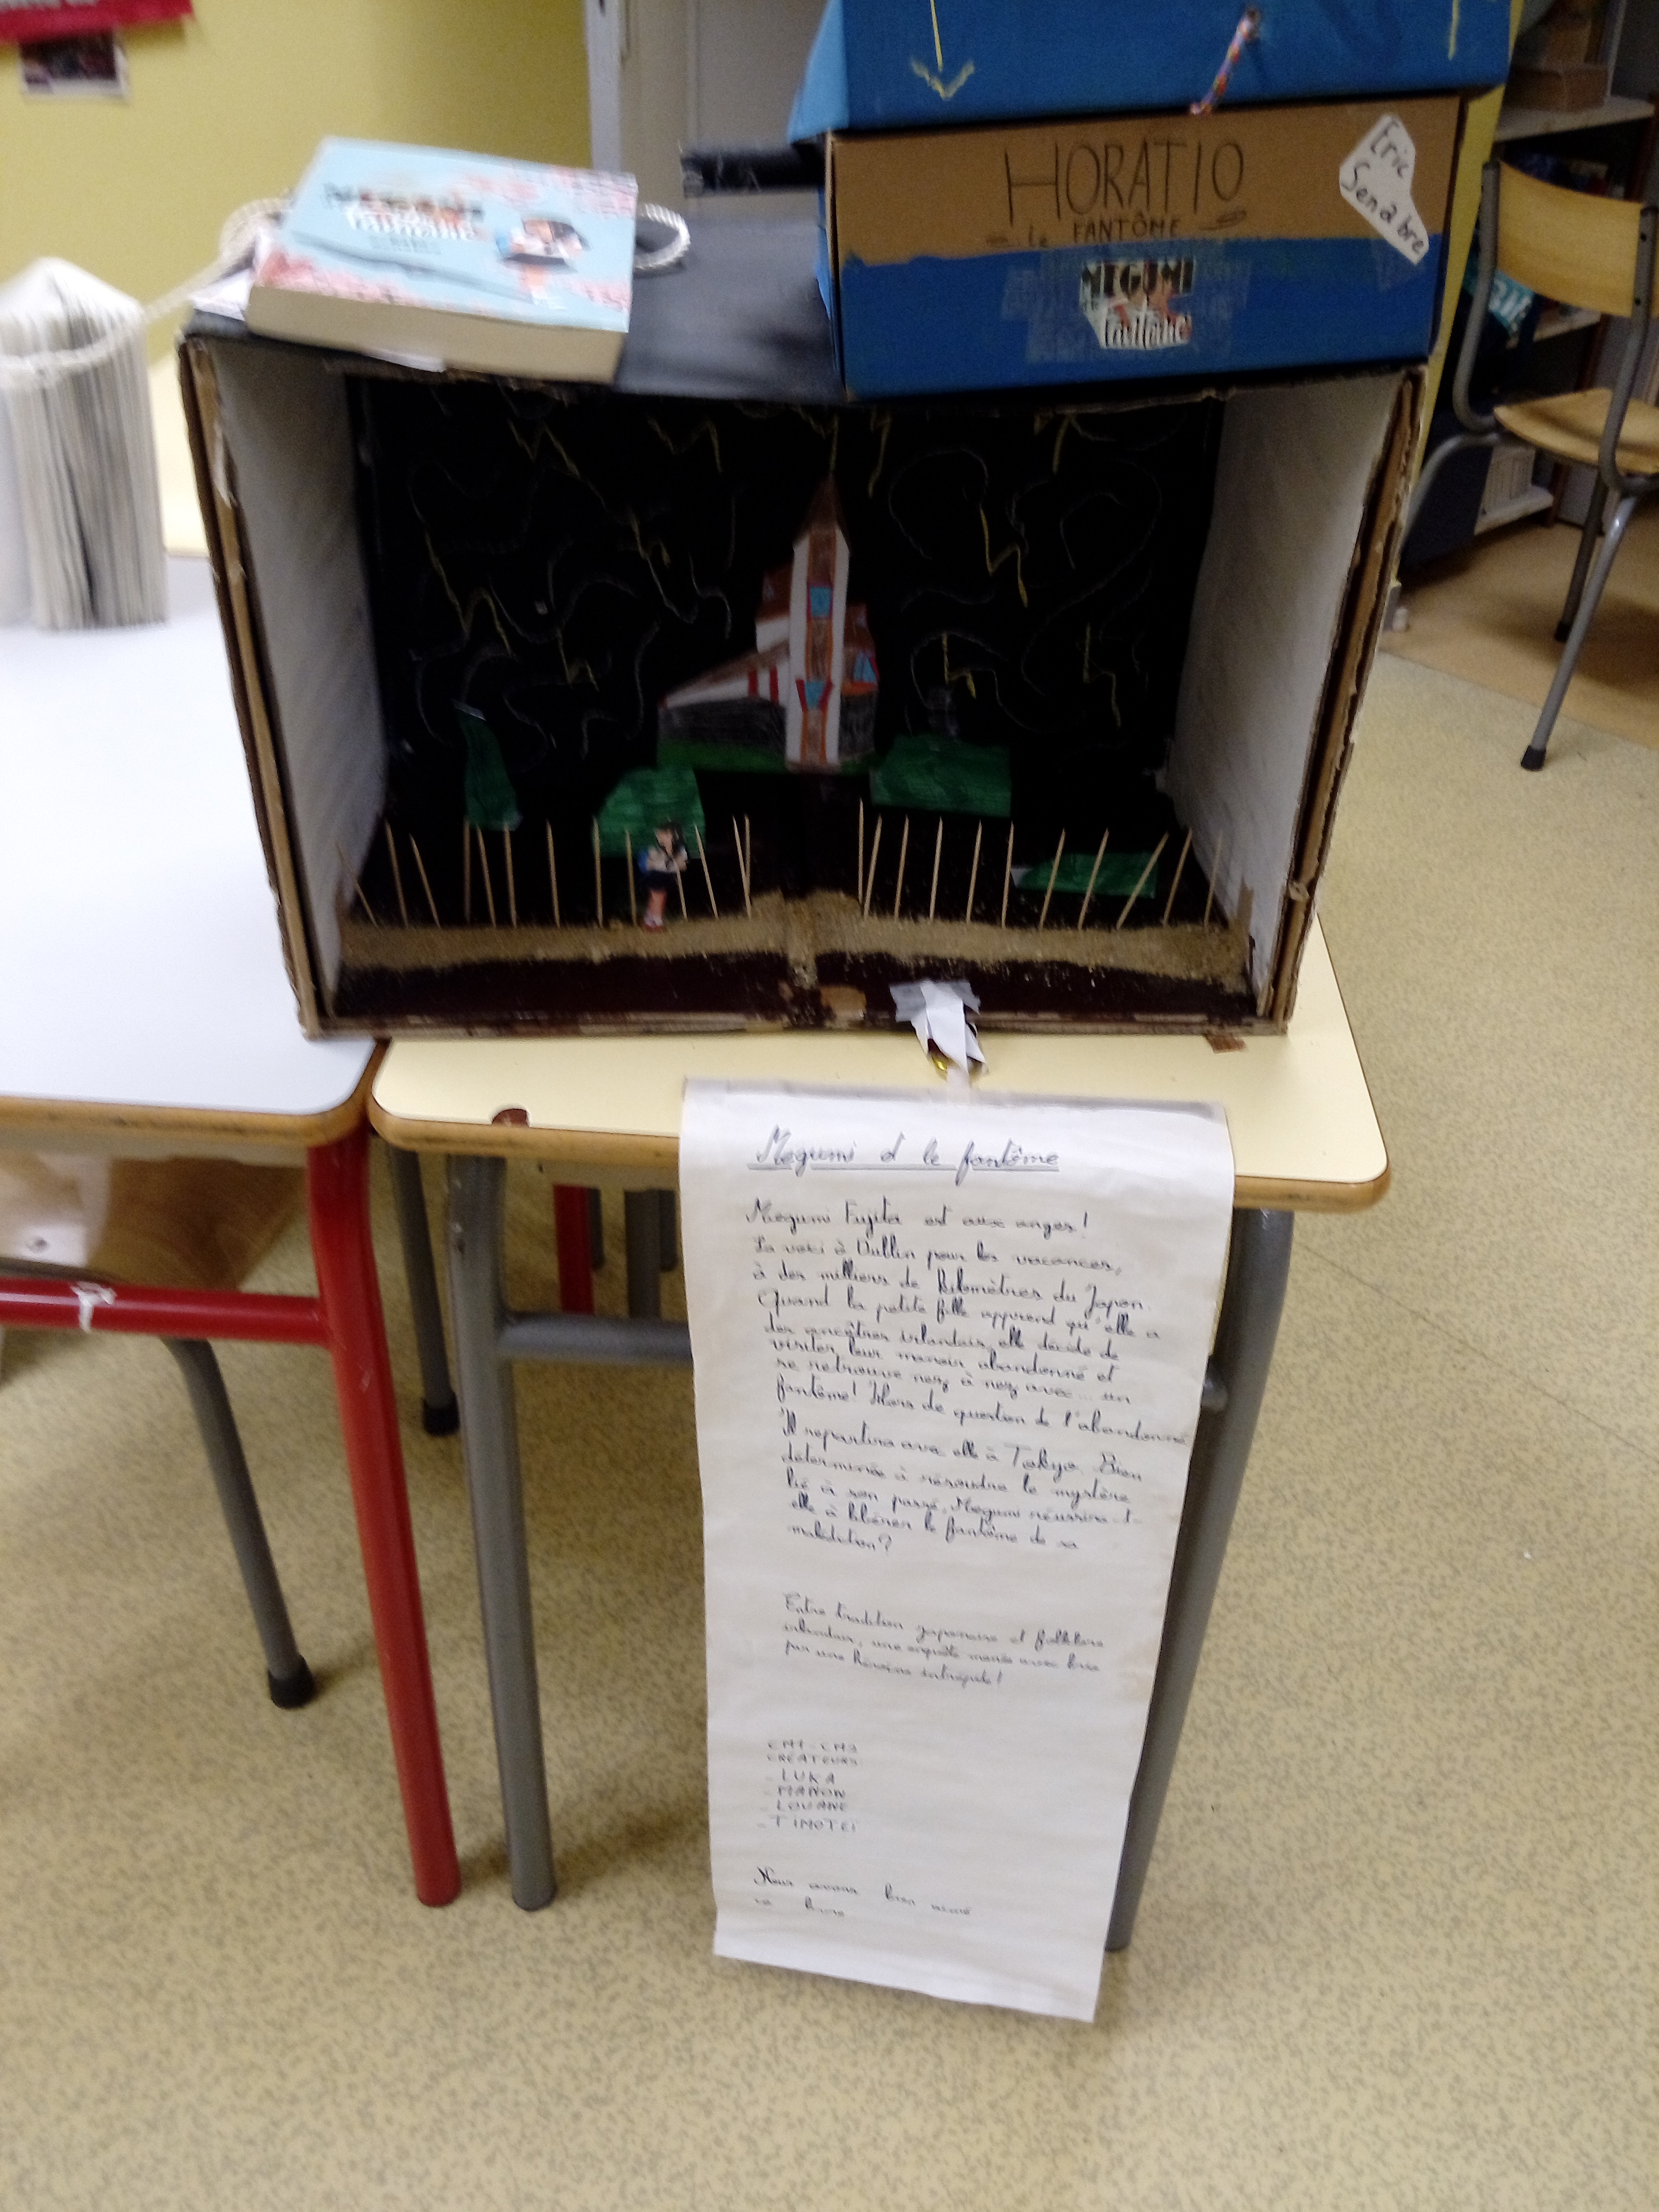 HORATIO
le FANTÔME
Eric
Senabre
MEGUMI
fantôme
MEGUMI
fantôme
Megumi et le fantôme
Megumi Fujita est aux anges!
La voici à Dublin pour les vacances,
à des milliers de kilomètres du Japon.
Quand la petite fille apprend qu'elle a
des ancêtres irlandais, elle décide de
visiter leur manoir abandonné et
se retrouve nez à nez avec... un
fantôme! Hors de question de l'abandonné
Il repartira avec elle à Tokyo. Bien
déterminée à résoudre le mystère
lié à son passé, Megumi réussira-t-
elle à libérer le fantôme de sa
malédiction?
Entre tradition japonaise et folklore
irlandais, une enquête menée avec brio
par une héroïne intrépide!
CM1-CM2
CRÉATEURS
- LUKA
- MANON
- LOUANE
- TIMOTEI
Nous avons bien aimé
ce livre